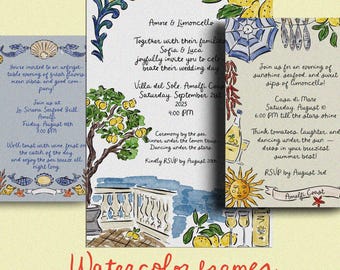 You're invited to an unforget-
table evening of fresh flavors
ocean vibes, and good com-
pany!
Join us at
La Sirena Seafood Grill
Amalfi
Friday, August 14th
7:00 PM
We'll toast with wine, feast on
the catch of the day,
and enjoy the sea breeze all
night long
Amore & Limoncello
Together with their families
Sofia & Luca
joyfully invite you to cele-
brate their wedding day
Villa del Sole, Amalfi Coast
Saturday, September 21st
2025
4:00 PM
Ceremony by the sea
Dinner under the lemon trees
Dancing under the stars
Kindly RSVP by August 10th
Join us for an evening of
sunshine, seafood, and sweet
sips of limoncello!
Casa di Mare
Saturday, August 10
6:00 PM till the stars shine
Think tomatoes, laughter, and
dancing under the sun
dress in your breeziest
summer best!
RSVP by August 3rd
Amalfi Coast
Watercolor frames